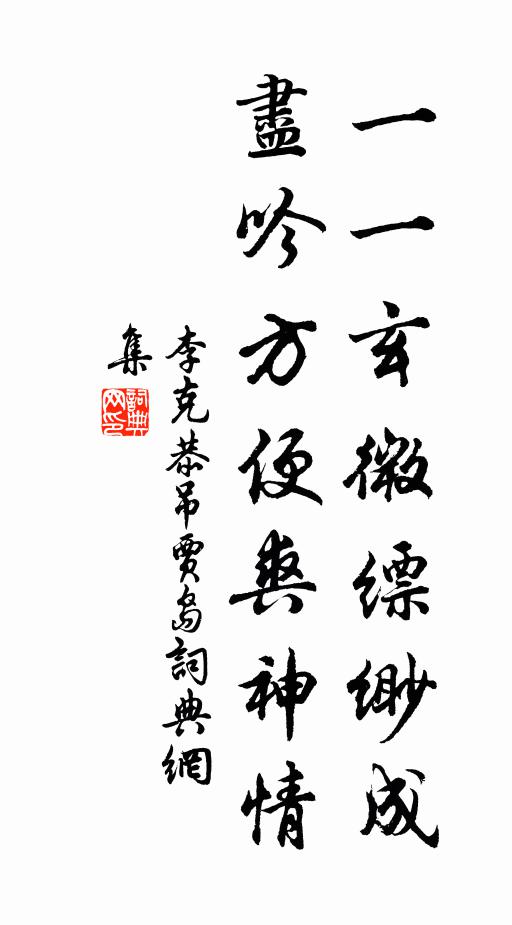 一一玄微缥缈成
盡吟方便爽神情
李克恭吊賈島詞典網
集
詞典
网印